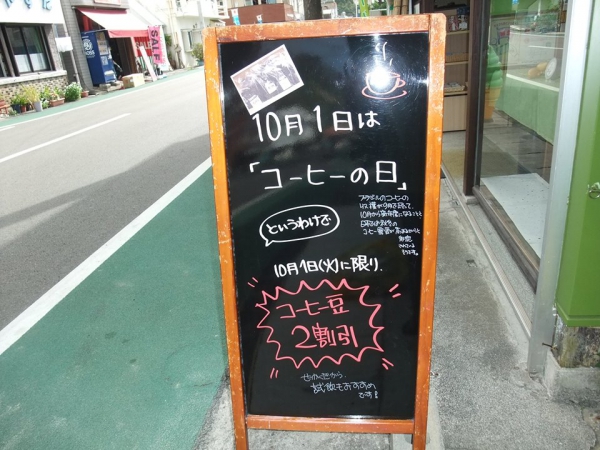 SALE
10月1日は
「コーヒーの日」
ブラジルのコーヒーの
収穫が9月で終って、
10月から新年度になることと
日本では秋冬の
コーヒー需要が高まるからと
制定
されている
そうです。
というわけで
10月1日(火)に限り、
コーヒー豆
2割引
せっかくだから、
試飲もおすすめ
です!